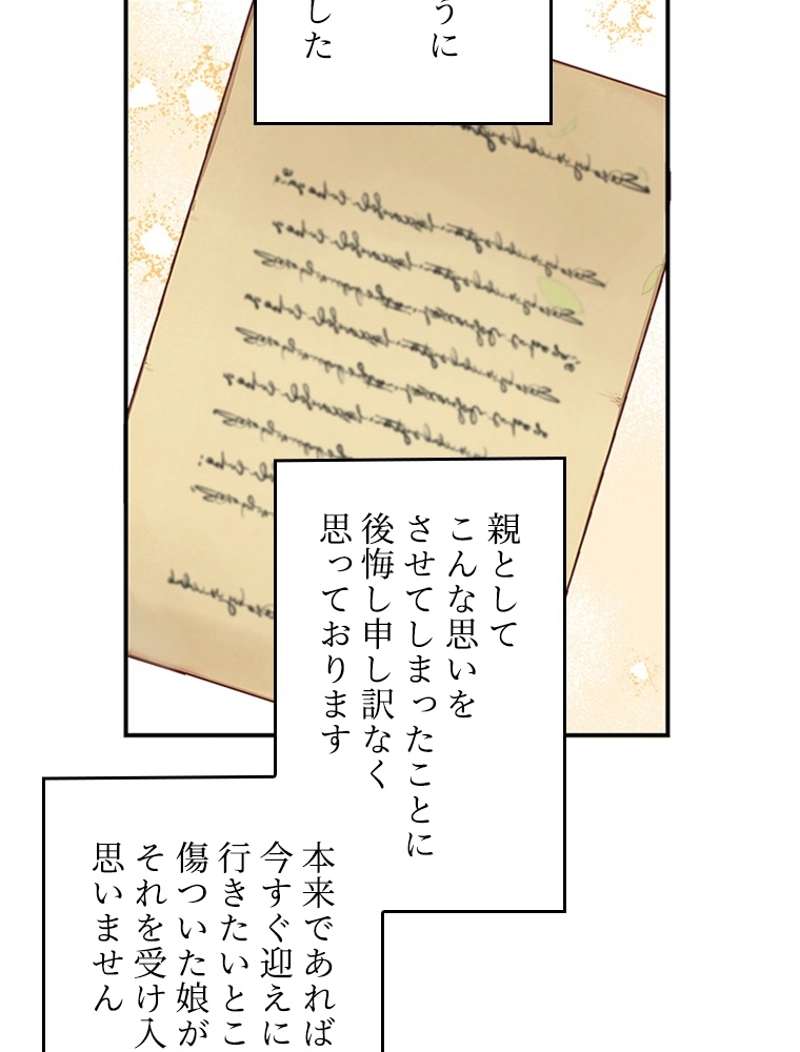 うに
した
親として
こんな思いを
させてしまったことに
後悔し申し訳なく
思っております
本来であれば
今すぐ迎えに
行きたいとこ
傷ついた娘が
それを受け入
思いません